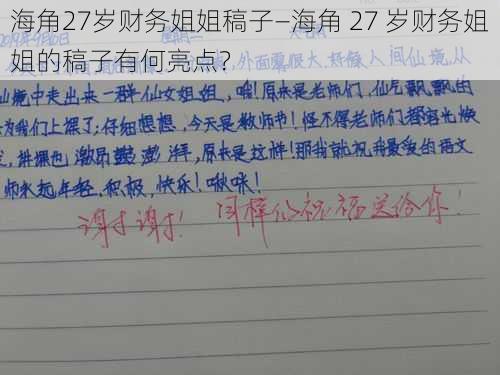 海角27岁财务姐姐稿子—海角 27 岁财务姐
姐的稿子有何亮点?
外面雾很大,好像人间仙境,从
仙境中走出来一群仙女姐姐,哦!原来是老师们,仙气飘飘的
为我们上课了;仔细想想,今天是教师节!怪不得老师们都容光焕
发,讲课也激昂澎湃,原来是这样!那我就祝我最爱的语文
师永远年轻,积极,快乐!啾咪!
谢谢谢谢!同样的祝福送给你!